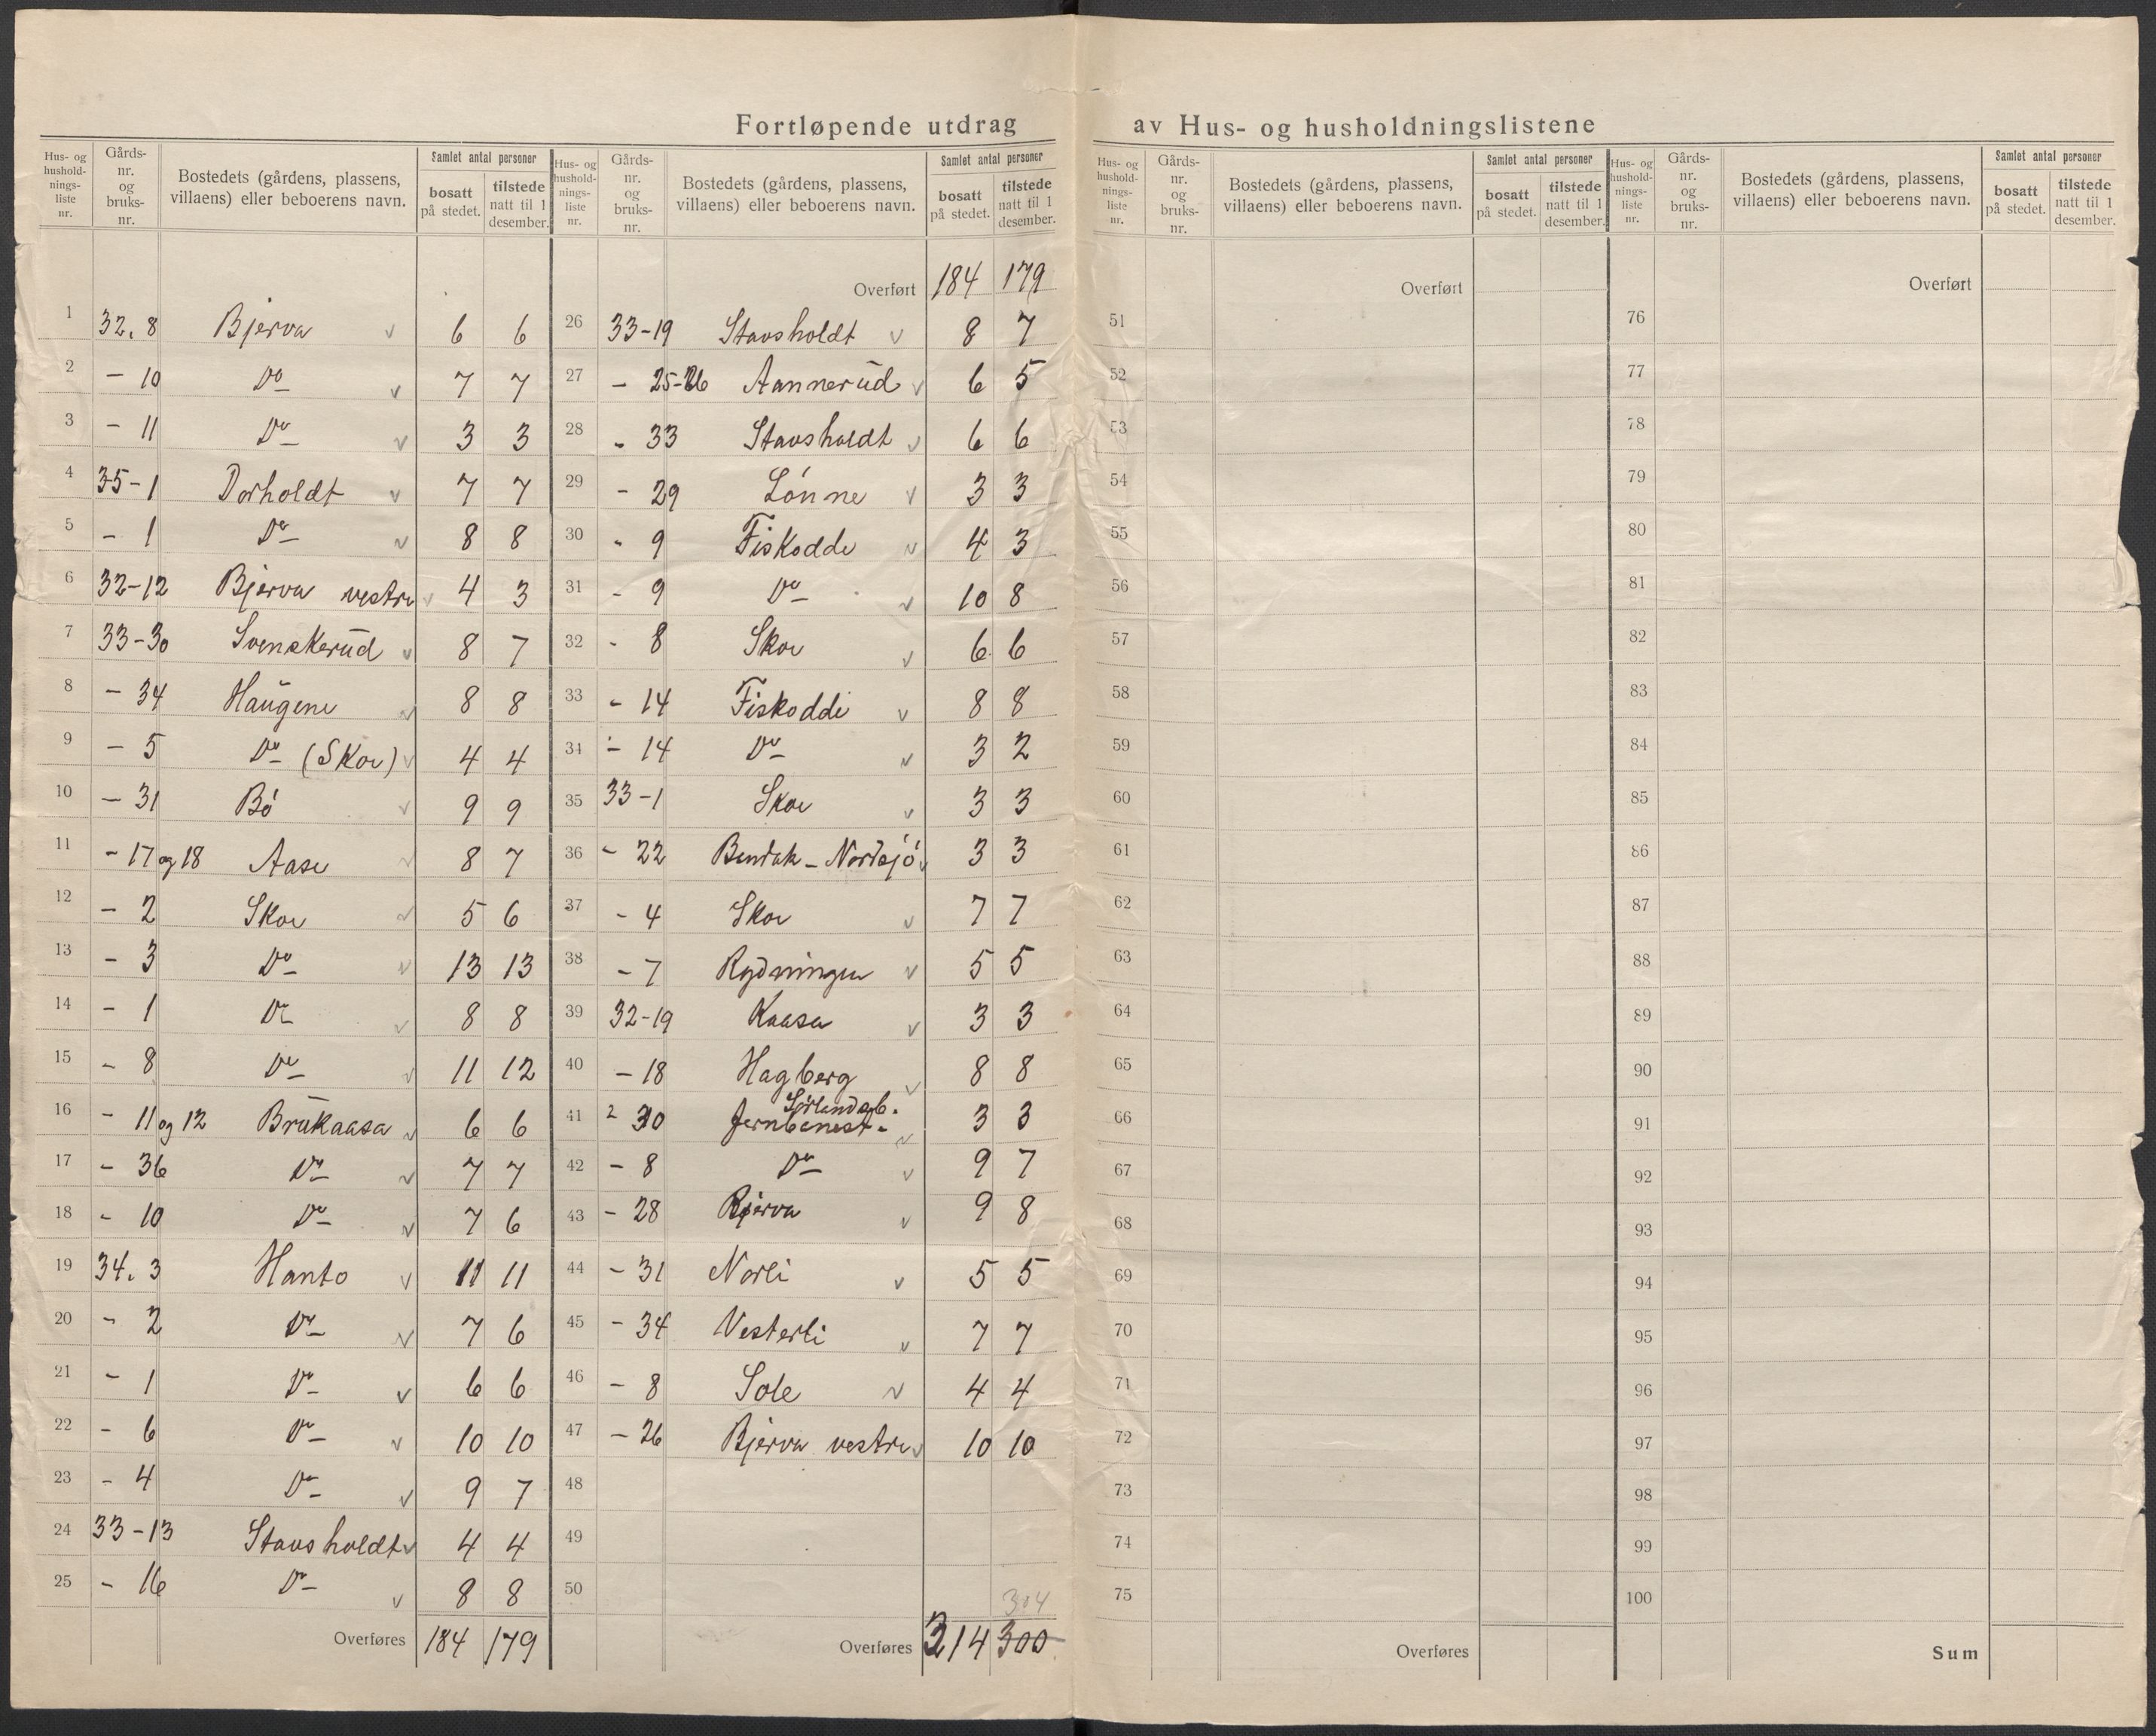 Fortløpende utdrag av Hus- og husholdningslistene
Hus- og hushold-nings-liste nr. | Gårds-nr. og bruks-nr. | Bostedets (gårdens, plassens, villaens) eller beboerens navn. | Samlet antal personer | bosatt på stedet. | tilstede natt til 1 desember.
1 32.8 Bjerva v 6 6
2 - 10 Do v 7 7
3 - 11 Do v 3 3
4 35-1 Dorholdt v 7 7
5 - 1 Do v 8 8
6 32-12 Bjerva vestre v 4 3
7 33-30 Svenskerud v 8 7
8 - 34 Haugene v 8 8
9 - 5 Do (Skoe) v 4 4
10 - 31 Bö v 9 9
11 - 17 og 18 Aase v 8 7
12 - 2 Skoe v 5 6
13 - 3 Do v 13 13
14 - 1 Do v 8 8
15 - 8 Do v 11 12
16 - 11 og 12 Brukaasa v 6 6
17 - 36 Do v 7 7
18 - 10 Do v 7 6
19 34.3 Hanto v 11 11
20 - 2 Do v 7 6
21 - 1 Do v 6 6
22 - 6 Do v 10 10
23 - 4 Do v 9 7
24 33-13 Stavsholdt v 4 4
25 - 16 Do v 8 8
Overføres 184 179
Hus- og hushold-nings-liste nr. | Gårds-nr. og bruks-nr. | Bostedets (gårdens, plassens, villaens) eller beboerens navn. | Samlet antal personer | bosatt på stedet. | tilstede natt til 1 desember.
Overført 184 179
26 33-19 Stavsholdt v 8 7
27 - 25-26 Aannerud v 6 5
28 - 33 Stavsholdt v 6 6
29 - 29 Lónne v 3 3
30 - 9 Fiskodde v 4 3
31 - 9 Do v 10 8
32 - 8 Skoe v 6 6
33 - 14 Fiskodde v 8 8
34 - 14 Do v 3 2
35 33-1 Skoe v 3 3
36 - 22 - Nordsjó v 3 3
37 - 4 Skoe v 7 7
38 - 7 Rydningen v 5 5
39 32-19 Kaasa v 3 3
40 - 18 Hagberg v 8 8
41 - 30 Sørlandsb. Jernbanest. v 3 3
42 - 8 Do v 9 7
43 - 28 Bjerva v 9 8
44 - 31 Norli v 5 5
45 - 34 Vesterli v 7 7
46 - 8 Sole v 4 4
47 - 26 Bjerva vestre v 10 10
48
49
50
304
Overføres 314 300
Hus- og hushold-nings-liste nr. | Gårds-nr. og bruks-nr. | Bostedets (gårdens, plassens, villaens) eller beboerens navn. | Samlet antal personer | bosatt på stedet. | tilstede natt til 1 desember.
Overført
51
52
53
54
55
56
57
58
59
60
61
62
63
64
65
66
67
68
69
70
71
72
73
74
75
Overføres
Hus- og hushold-nings-liste nr. | Gårds-nr. og bruks-nr. | Bostedets (gårdens, plassens, villaens) eller beboerens navn. | Samlet antal personer | bosatt på stedet. | tilstede natt til 1 desember.
Overført
76
77
78
79
80
81
82
83
84
85
86
87
88
89
90
91
92
93
94
95
96
97
98
99
100
Sum